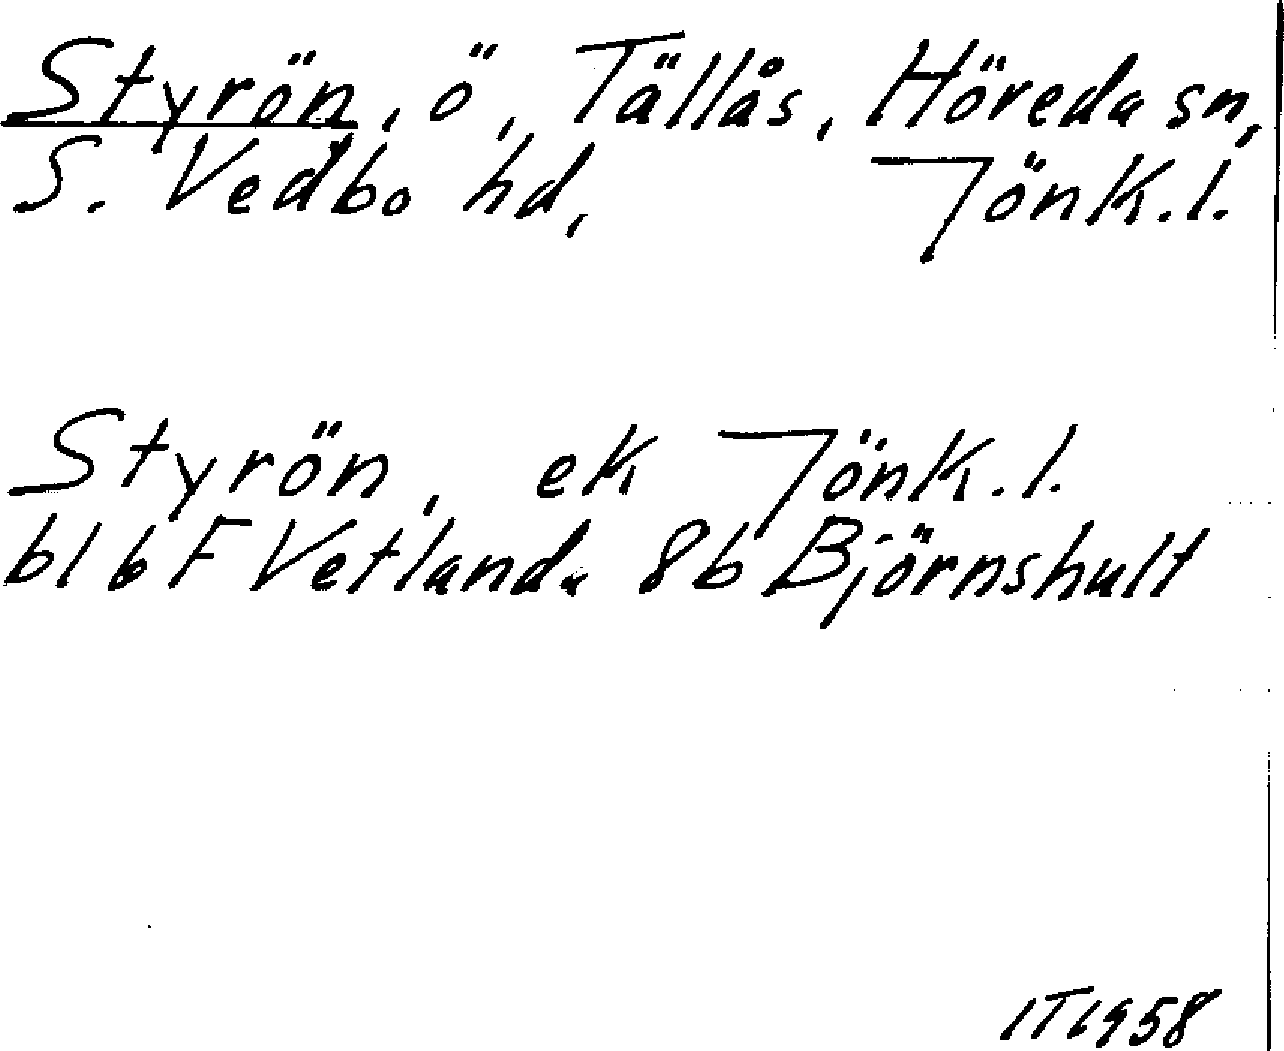 Styrön, ö, Tällås, Höreda sn,
S. Vedbo hd, Jönk.l.
Styrön, ek Jönk.l.
bl 6 F Vetlanda 8b Björnshult
IT 1958